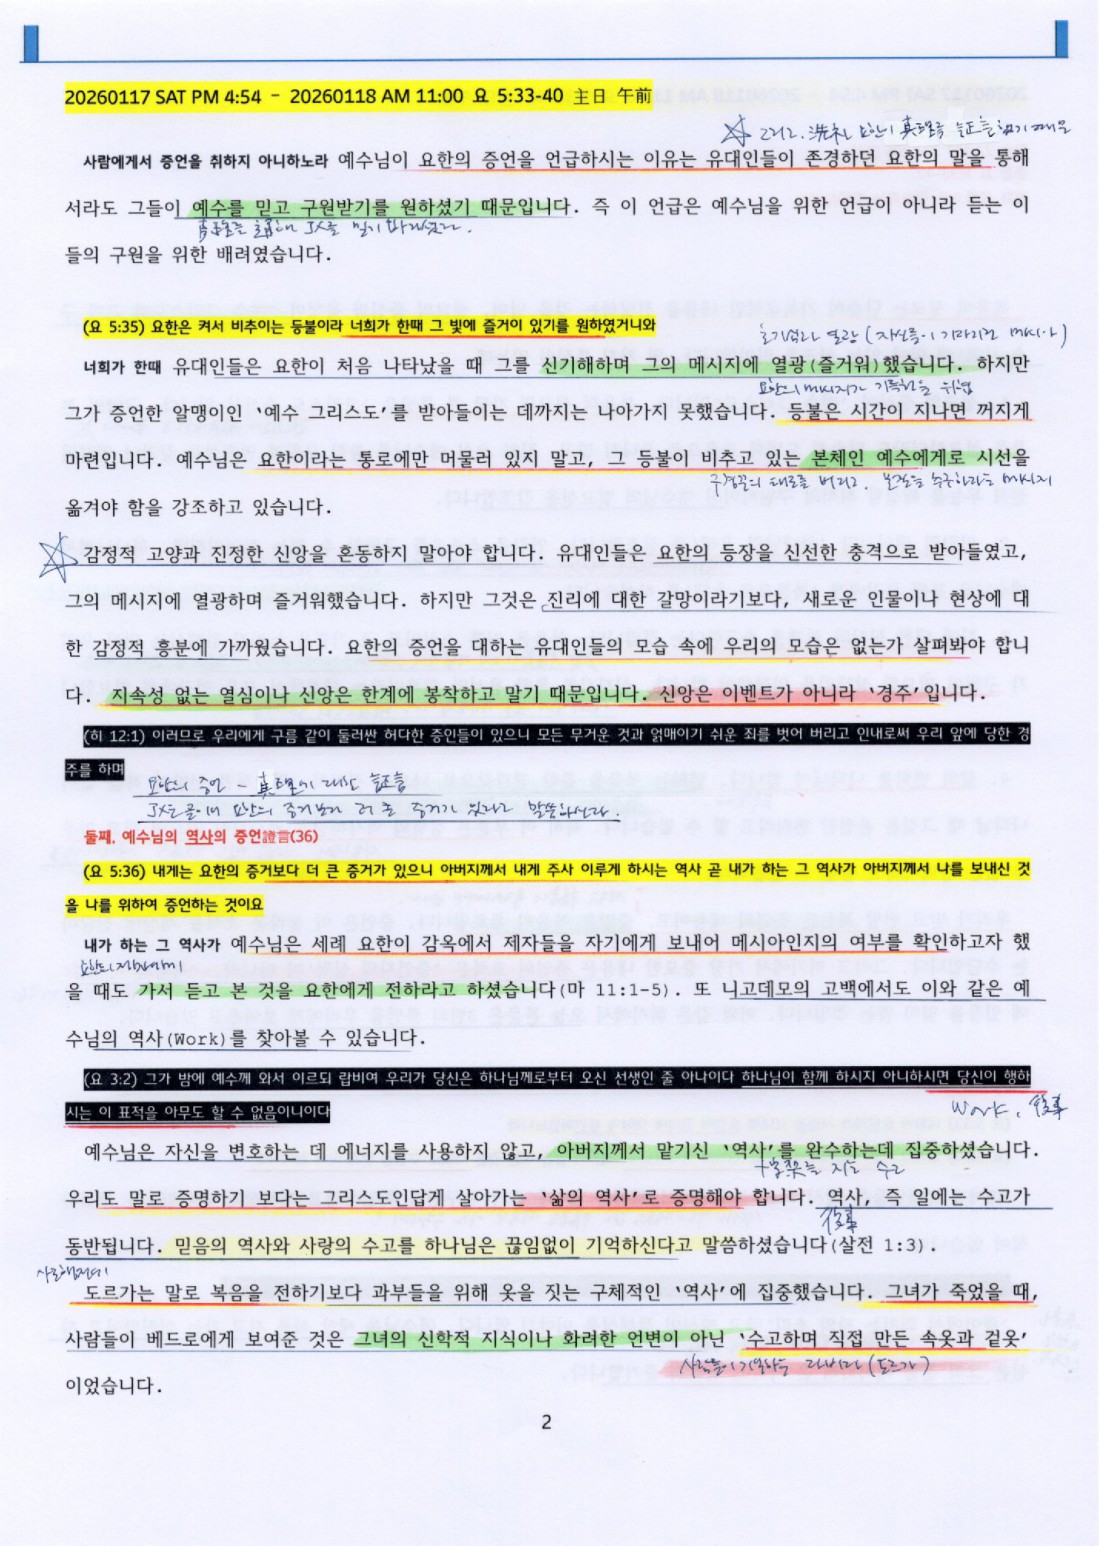 20260117 SAT PM 4:54 - 20260118 AM 11:00 요 5:33-40 主日 午前
그리고. 洗礼 요한이 真理를 証言했기 때문
사람에게서 증언을 취하지 아니하노라 예수님이 요한의 증언을 언급하시는 이유는 유대인들이 존경하던 요한의 말을 통해
서라도 그들이 예수를 믿고 구원받기를 원하셨기 때문입니다. 즉 이 언급은 예수님을 위한 언급이 아니라 듣는 이
믿기 바라셨다.
들의 구원을 위한 배려였습니다.
(요 5:35) 요한은 켜서 비추이는 등불이라 너희가 한때 그 빛에 즐거이 있기를 원하였거니와
열광 (자신들이 기다리던 메시아)
너희가 한때 유대인들은 요한이 처음 나타났을 때 그를 신기해하며 그의 메시지에 열광(즐거워)했습니다. 하지만
요한의 메시지가
그가 증언한 알맹이인 ‘예수 그리스도’를 받아들이는 데까지는 나아가지 못했습니다. 등불은 시간이 지나면 꺼지게
마련입니다. 예수님은 요한이라는 통로에만 머물러 있지 말고, 그 등불이 비추고 있는 본체인 예수에게로 시선을
버리고. 메시지
옮겨야 함을 강조하고 있습니다.
감정적 고양과 진정한 신앙을 혼동하지 말아야 합니다. 유대인들은 요한의 등장을 신선한 충격으로 받아들였고,
그의 메시지에 열광하며 즐거워했습니다. 하지만 그것은 진리에 대한 갈망이라기보다, 새로운 인물이나 현상에 대
한 감정적 흥분에 가까웠습니다. 요한의 증언을 대하는 유대인들의 모습 속에 우리의 모습은 없는가 살펴봐야 합니
다. 지속성 없는 열심이나 신앙은 한계에 봉착하고 말기 때문입니다. 신앙은 이벤트가 아니라 ‘경주’입니다.
(히 12:1) 이러므로 우리에게 구름 같이 둘러싼 허다한 증인들이 있으니 모든 무거운 것과 얽매이기 쉬운 죄를 벗어 버리고 인내로써 우리 앞에 당한 경
주를 하며
요한의 증언 - 真理에 대한 証言
요한의 증거보다 더 큰 증거가 있다고 말씀하신다.
둘째, 예수님의 역사의 증언證言(36)
(요 5:36) 내게는 요한의 증거보다 더 큰 증거가 있으니 아버지께서 내게 주사 이루게 하시는 역사 곧 내가 하는 그 역사가 아버지께서 나를 보내신 것
을 나를 위하여 증언하는 것이요
내가 하는 그 역사가 예수님은 세례 요한이 감옥에서 제자들을 자기에게 보내어 메시아인지의 여부를 확인하고자 했
요한의 제자에게
을 때도 가서 듣고 본 것을 요한에게 전하라고 하셨습니다(마 11:1-5). 또 니고데모의 고백에서도 이와 같은 예
수님의 역사(Work)를 찾아볼 수 있습니다.
(요 3:2) 그가 밤에 예수께 와서 이르되 랍비여 우리가 당신은 하나님께로부터 오신 선생인 줄 아나이다 하나님이 함께 하시지 아니하시면 당신이 행하
시는 이 표적을 아무도 할 수 없음이니이다
Work, 役事
예수님은 자신을 변호하는 데 에너지를 사용하지 않고, 아버지께서 맡기신 ‘역사’를 완수하는데 집중하셨습니다.
十字架를 지는 수고
우리도 말로 증명하기 보다는 그리스도인답게 살아가는 ‘삶의 역사’로 증명해야 합니다. 역사, 즉 일에는 수고가
役事
동반됩니다. 믿음의 역사와 사랑의 수고를 하나님은 끊임없이 기억하신다고 말씀하셨습니다(살전 1:3).
도르가는 말로 복음을 전하기보다 과부들을 위해 옷을 짓는 구체적인 ‘역사’에 집중했습니다. 그녀가 죽었을 때,
사람들이 베드로에게 보여준 것은 그녀의 신학적 지식이나 화려한 언변이 아닌 ‘수고하며 직접 만든 속옷과 겉옷’
다비다 (도르가)
이었습니다.
2